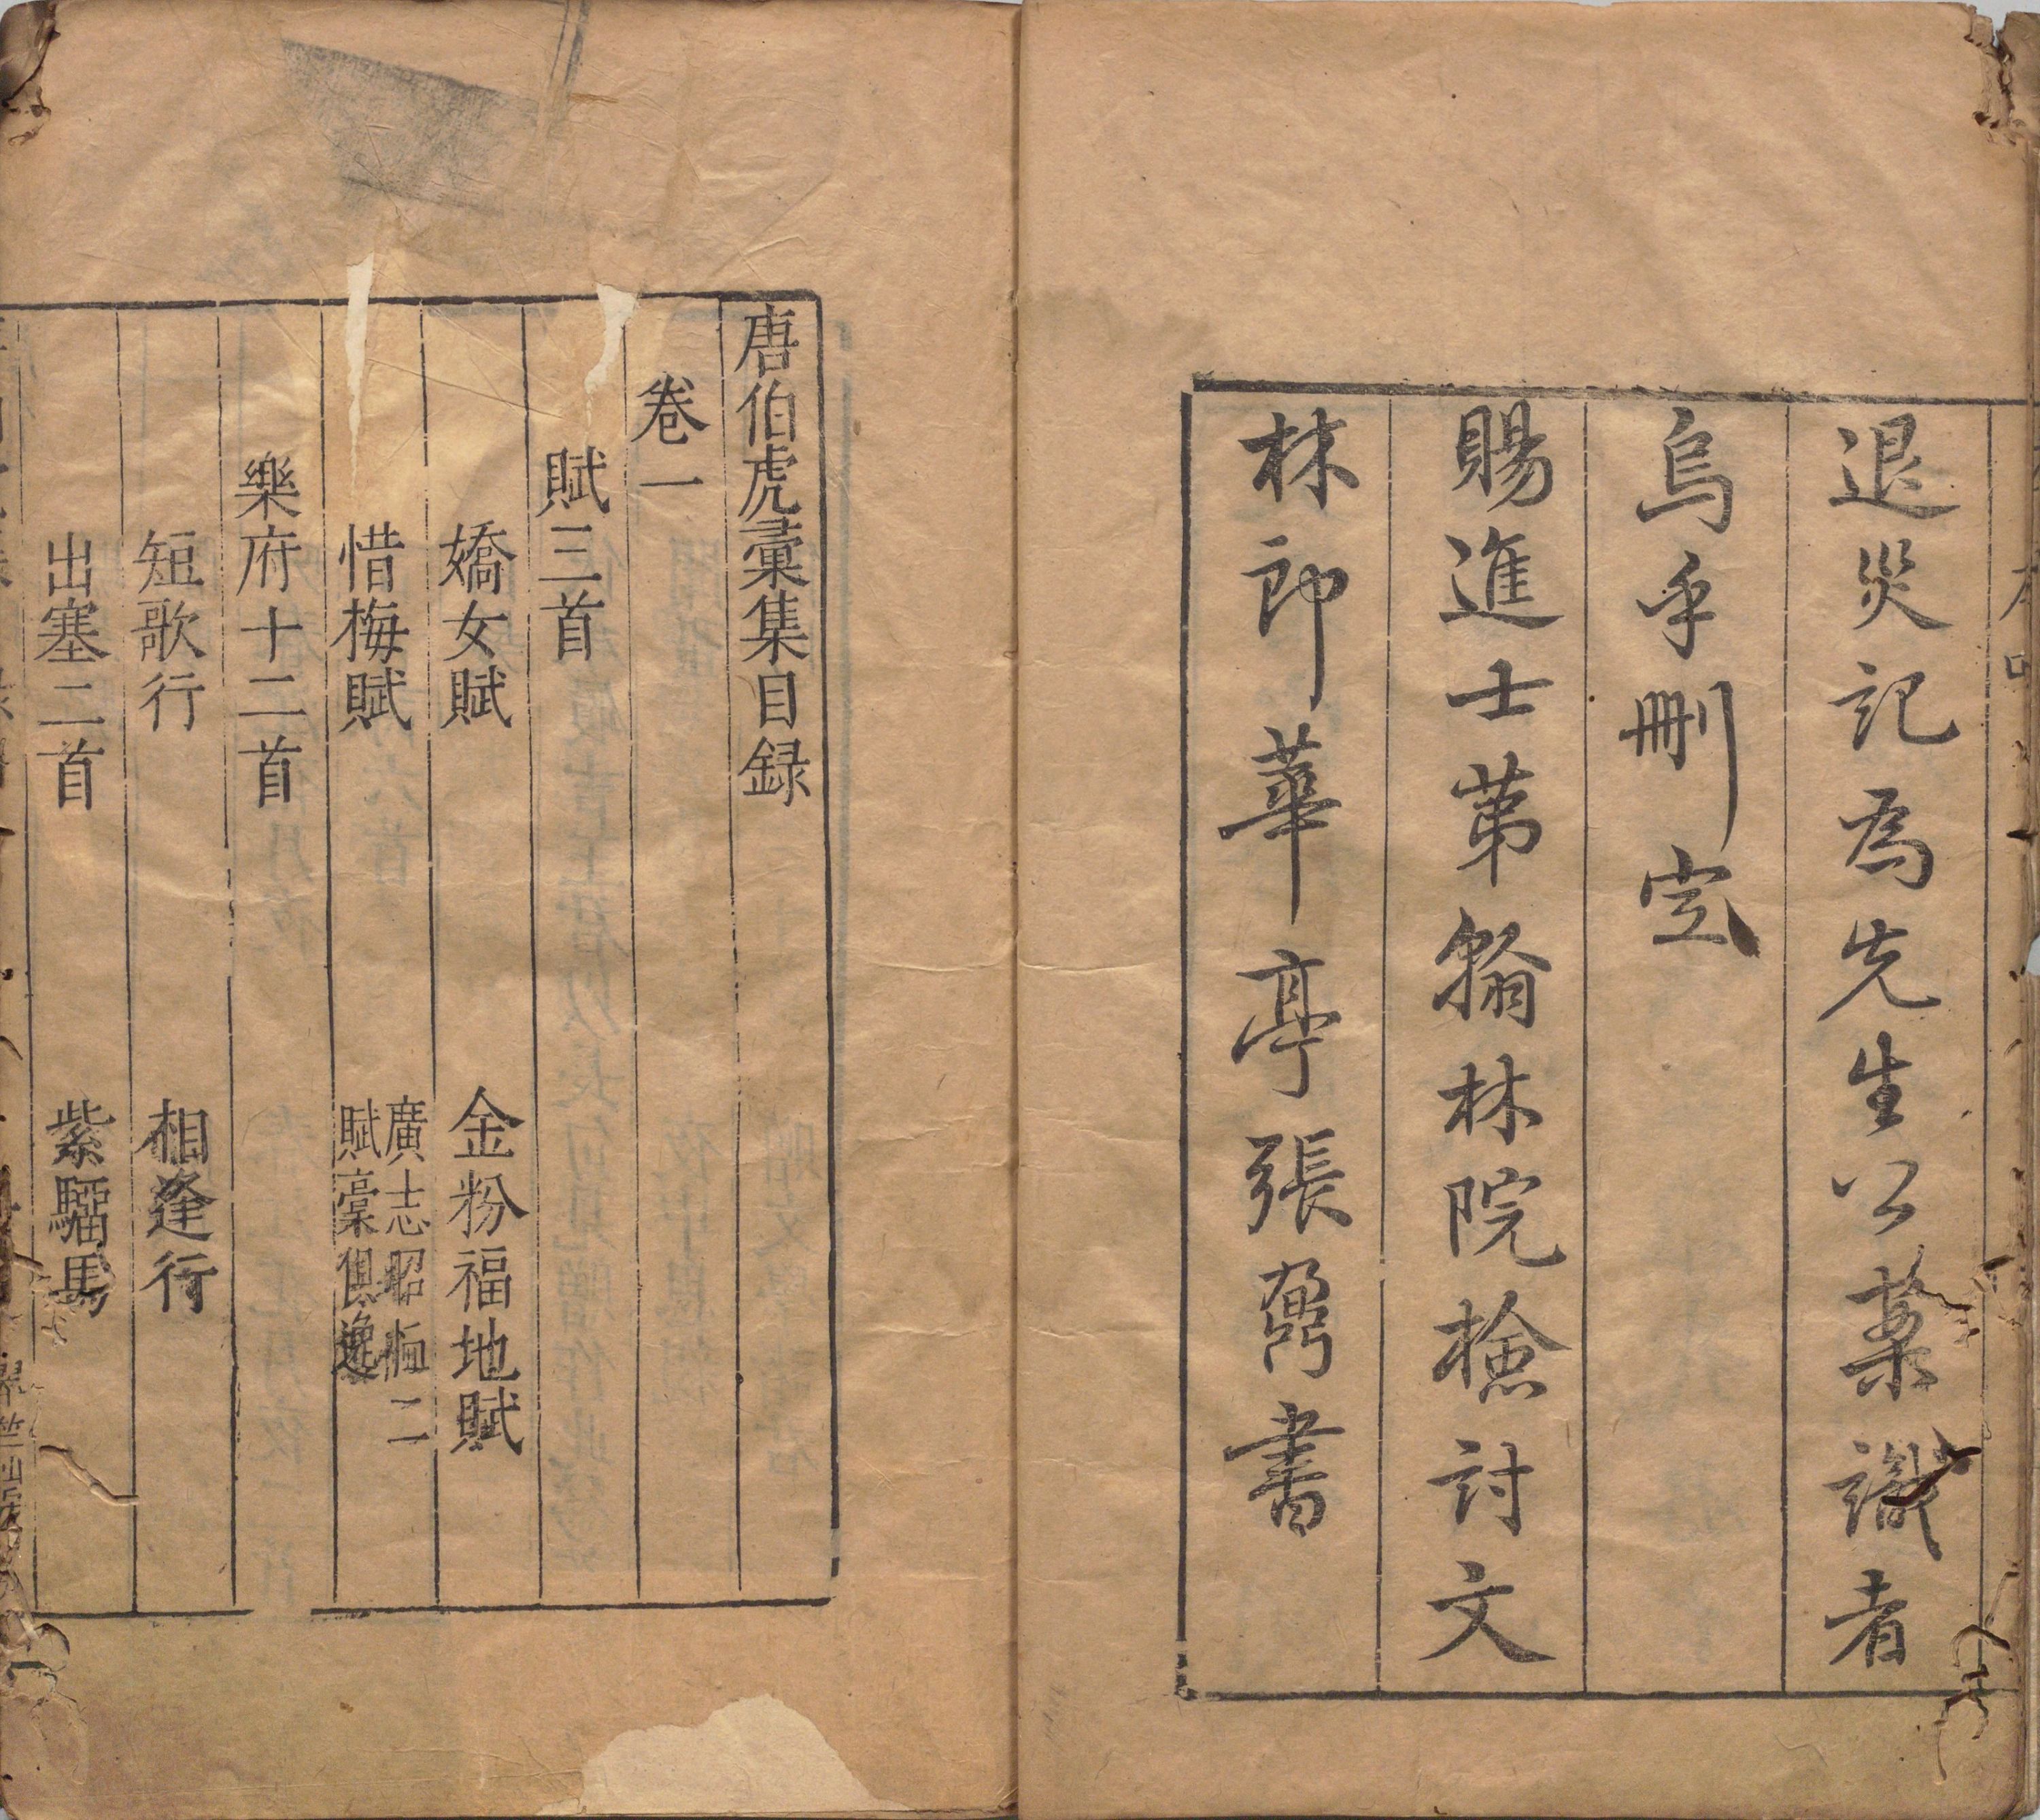 退災記爲先生公藁識者
烏乎刪定
賜進士第翰林院檢討文
林郎華亭張鼐書
唐伯虎彙集目録
卷一
賦三首
嬌女賦 金粉福地賦
惜梅賦 廣志昭恤二
賦藁俱逸
樂府十二首
短歌行 相逢行
出塞二首 紫騮馬